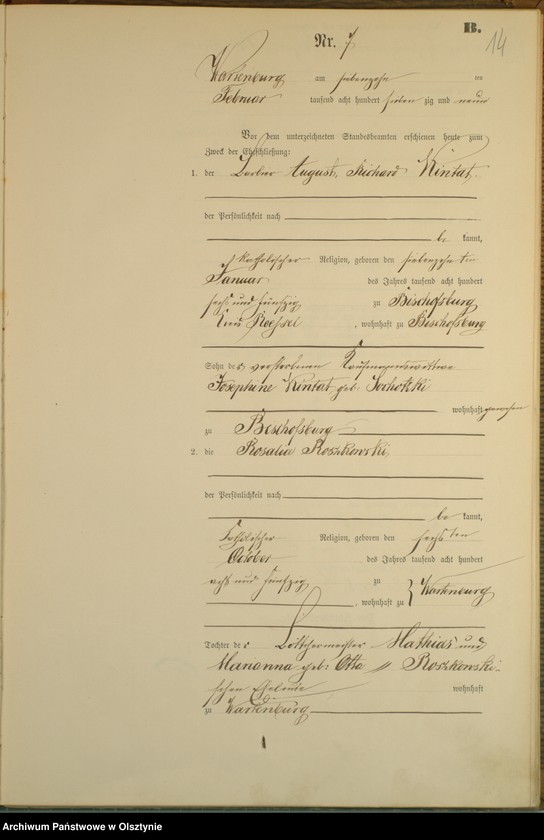 B.
14
Nr. 7
Wartenburg am siebenzehn ten
Februar tausend acht hundert sieben zig und neun
Vor dem unterzeichneten Standesbeamten erschienen heute zum
Zweck der Eheschließung:
1. der Barbier August Richard Kintat
der Persönlichkeit nach
be kannt,
katholischer Religion, geboren den siebenzehn ten
Januar des Jahres tausend acht hundert
sechs und fünfzig zu Bischofsburg
Kreis Roessel, wohnhaft zu Bischofsburg
Sohn der verstorbenen Kaufmannswittwe
Josephine Kintat geb.
wohnhaft gewesen
zu Bischofsburg
2. die Rosalia Roszkowski
der Persönlichkeit nach
be kannt,
katholischer Religion, geboren den sechs ten
October des Jahres tausend acht hundert
acht und fünfzig zu
, wohnhaft zu } Wartenburg
Tochter der Böttchermeister Mathias und
Marianna geb. Otta // Roszkowski-
schen Eheleute wohnhaft
zu Wartenburg
Archiwum Państwowe w Olsztynie